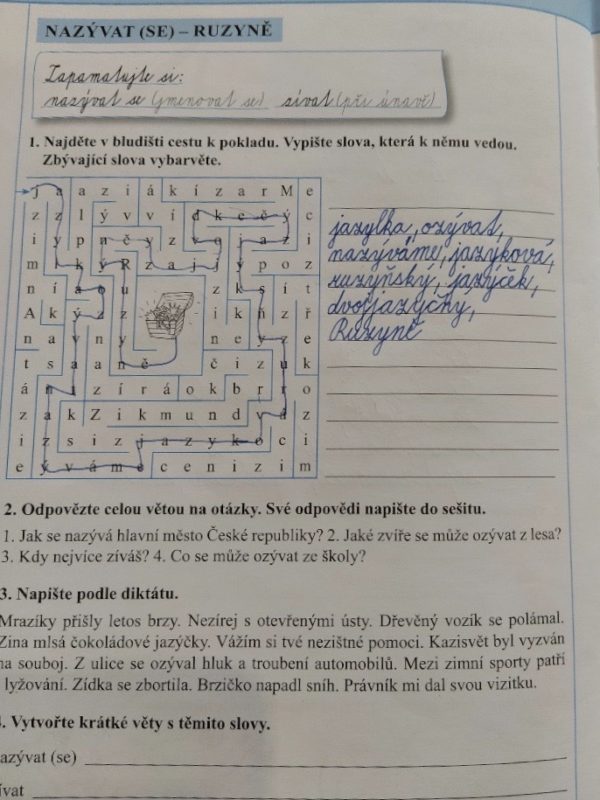 NAZÝVAT (SE) – RUZYNĚ
Zapamatujte si:
nazývat se (jmenovat se) zívat (při únavě)
1. Najděte v bludišti cestu k pokladu. Vypište slova, která k němu vedou.
Zbývající slova vybarvěte.
j a a z i á k í z a r M e
z z l ý v v í d k e č ý c
i y p n č y z v o j a z i
m l k ý R z a j í ý p o z
n í a o u z k s í t
A k ý z z i k ň z ř
n a v n y n e y z e
t s a a n ě č i z u k
á n i z í r á o k b r r o
z a k Z i k m u n d v á z
i z s i z j a z y k o c i
e ý v á m e c e n i z i m
jazylka, ozývat,
nazýváme, jazyková,
ruzyňský, jazýček,
dvojjazyčný,
Ruzyně
2. Odpovězte celou větou na otázky. Své odpovědi napište do sešitu.
1. Jak se nazývá hlavní město České republiky? 2. Jaké zvíře se může ozývat z lesa?
3. Kdy nejvíce zíváš? 4. Co se může ozývat ze školy?
3. Napište podle diktátu.
Mrazíky přišly letos brzy. Nezírej s otevřenými ústy. Dřevěný vozík se polámal.
Zina mlsá čokoládové jazýčky. Vážím si tvé nezištné pomoci. Kazisvět byl vyzván
na souboj. Z ulice se ozýval hluk a troubení automobilů. Mezi zimní sporty patří
lyžování. Zídka se zbortila. Brzičko napadl sníh. Právník mi dal svou vizitku.
. Vytvořte krátké věty s těmito slovy.
azývat (se)
ívat